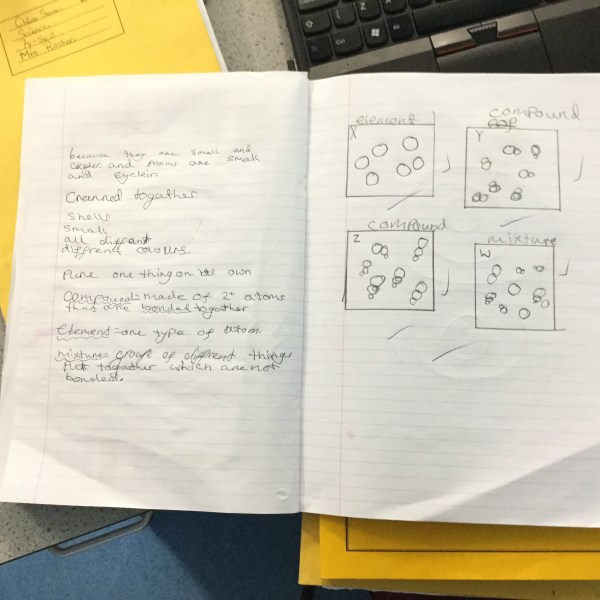 because they are small and
and Atoms are small
and
Crammed togather
shells
small
all diffrent
diffrent colours.
Pure one thing on its own
Compound= made of 2+ atoms
that are bonded together
Element= one type of atom.
mixture= group of different things
Put togather which are not
bonded.
element
X
compound
Y
compound
Z
mixture
W
Ctrl
Alt